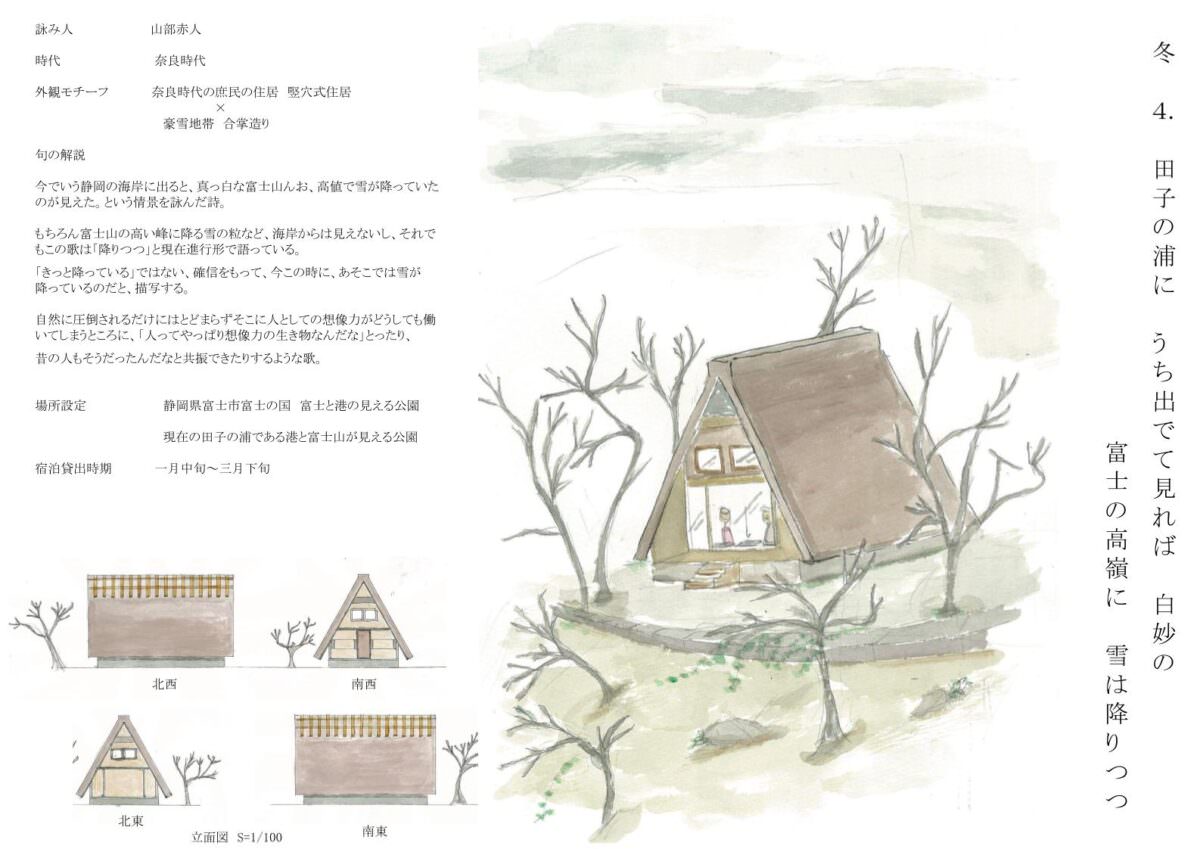 冬 4. 田子の浦に うち出でて見れば 白妙の
富士の高嶺に 雪は降りつつ
詠み人 山部赤人
時代 奈良時代
外観モチーフ 奈良時代の庶民の住居 竪穴式住居
×
豪雪地帯 合掌造り
句の解説
今でいう静岡の海岸に出ると、真っ白な富士山んお、高値で雪が降っていた
のが見えた。という情景を詠んだ詩。
もちろん富士山の高い峰に降る雪の粒など、海岸からは見えないし、それで
もこの歌は「降りつつ」と現在進行形で語っている。
「きっと降っている」ではない、確信をもって、今この時に、あそこでは雪が
降っているのだと、描写する。
自然に圧倒されるだけにはとどまらずそこに人としての想像力がどうしても働
いてしまうところに、「人ってやっぱり想像力の生き物なんだな」とったり、
昔の人もそうだったんだなと共振できたりするような歌。
場所設定 静岡県富士市富士の国 富士と港の見える公園
現在の田子の浦である港と富士山が見える公園
宿泊貸出時期 一月中旬～三月下旬
北西
南西
北東
南東
立面図 S=1/100